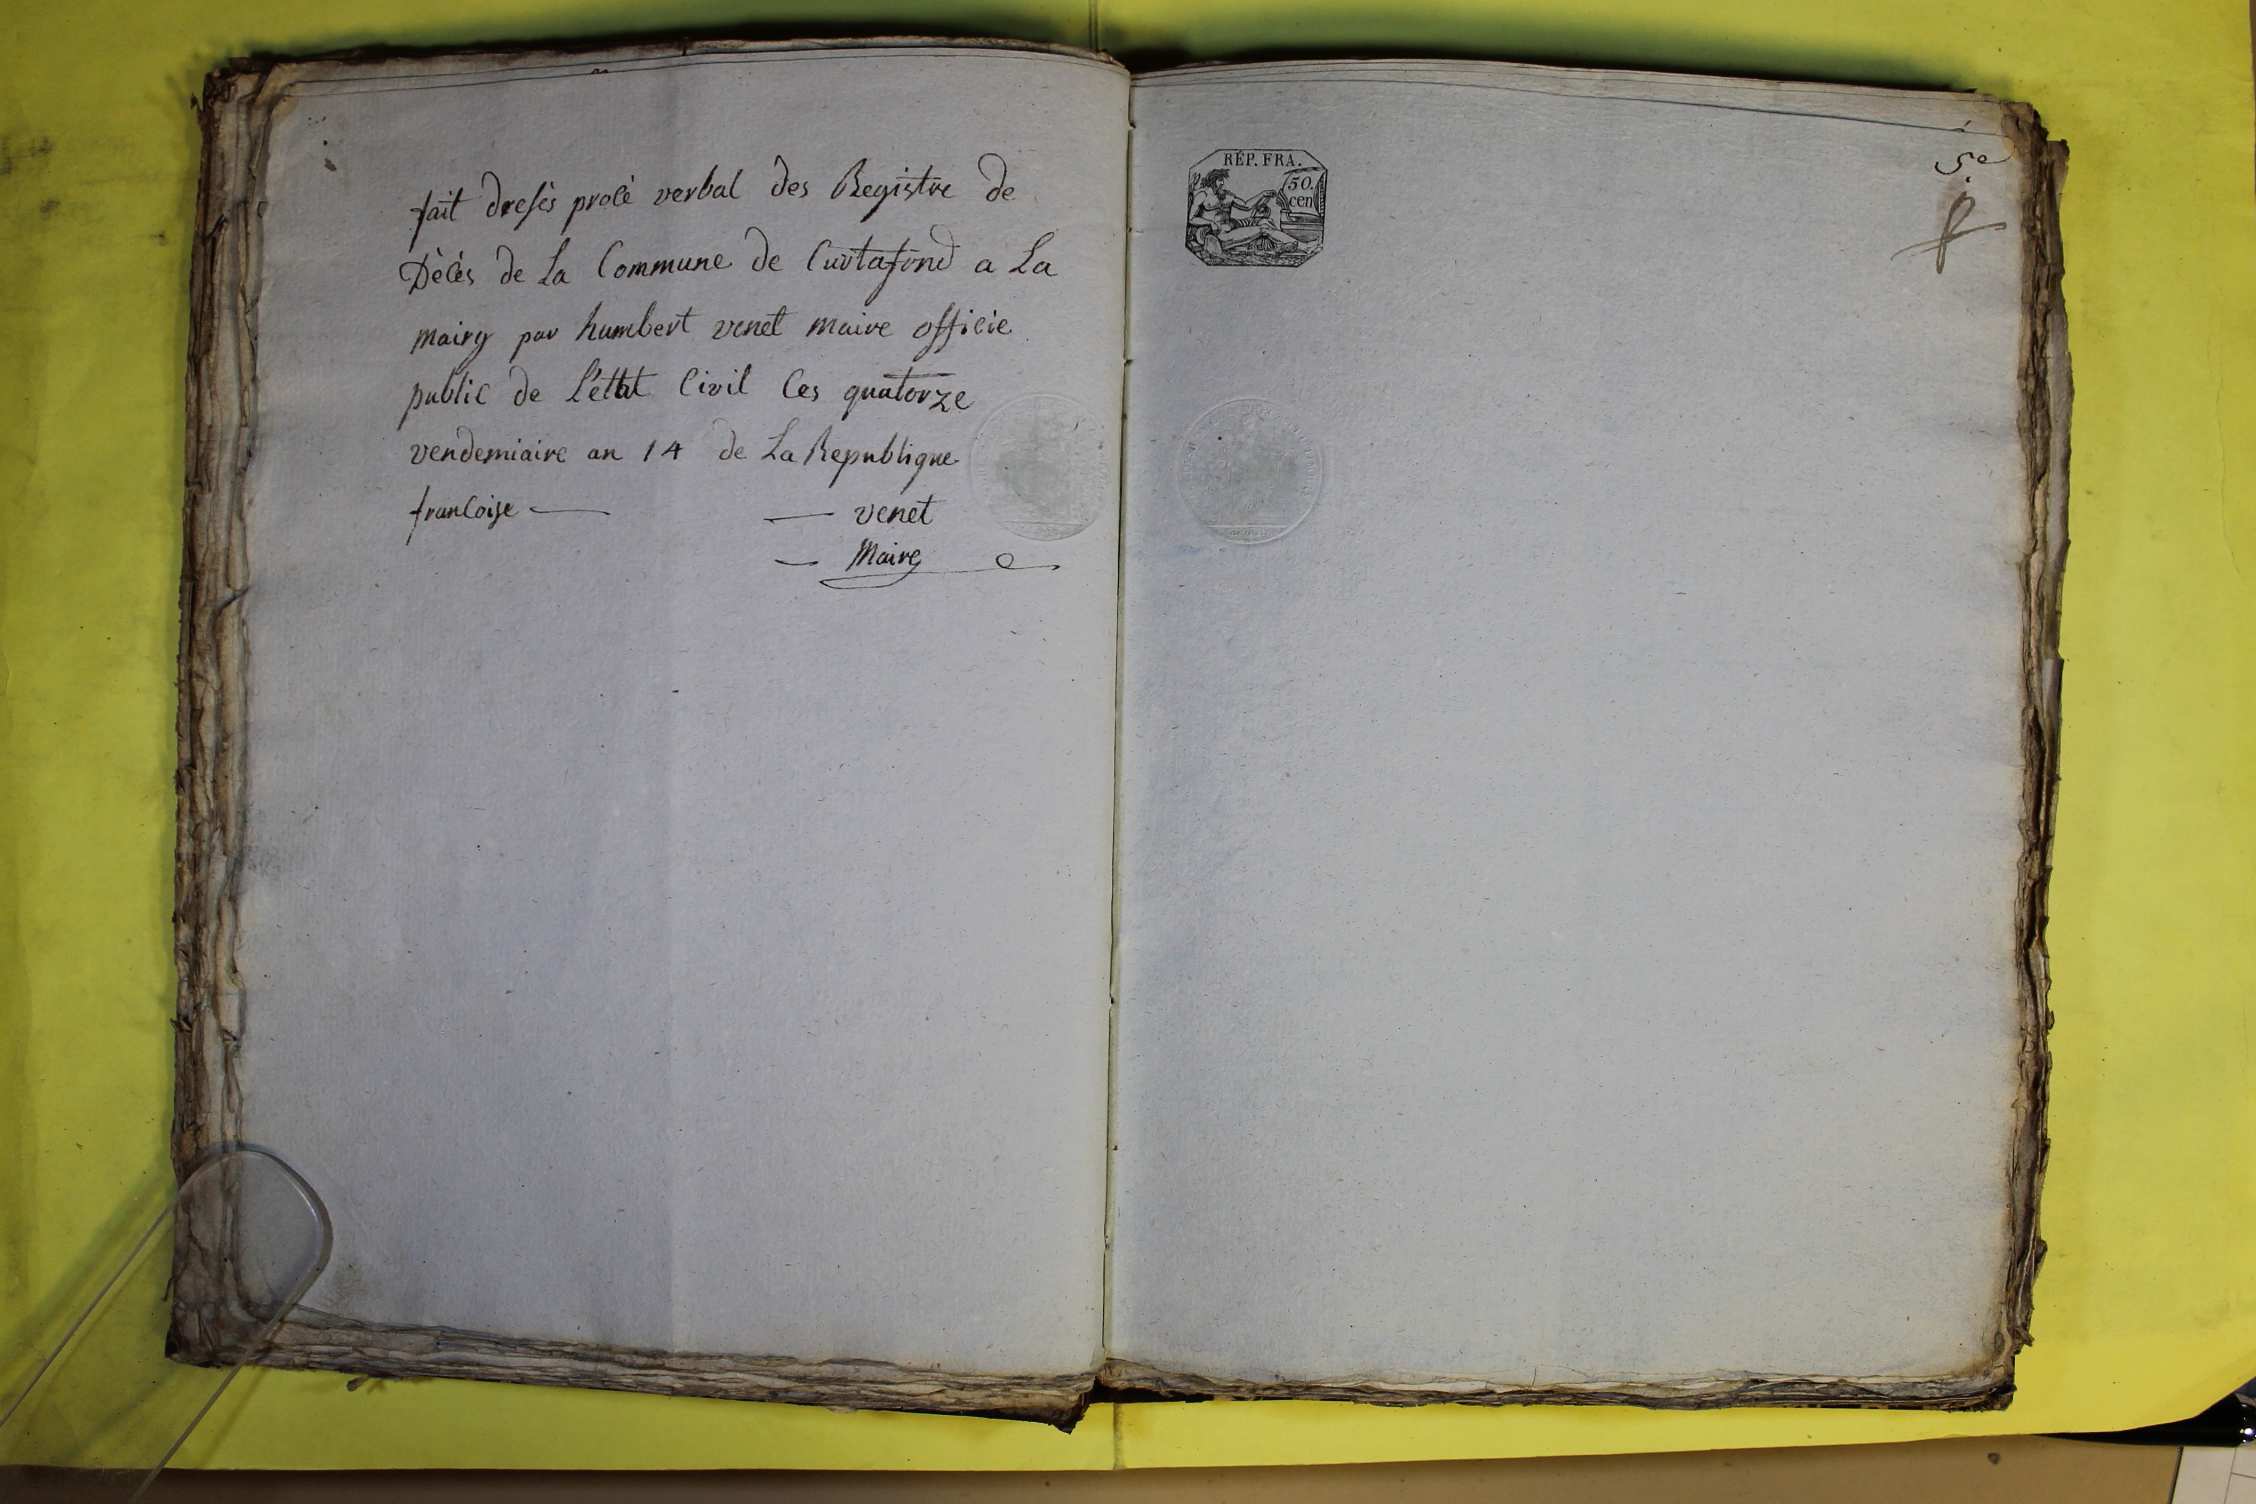 fait dresés procè verbal des Registre de
Dècès de La Commune de Curtafond a La
mairy par humbert venet maire officie
public de L'éttat Civil Ces quatorze
vendemiaire an 14 de La Republique
francoise — — venet
— Maire
RÉP. FRA.
50.
cen
5e